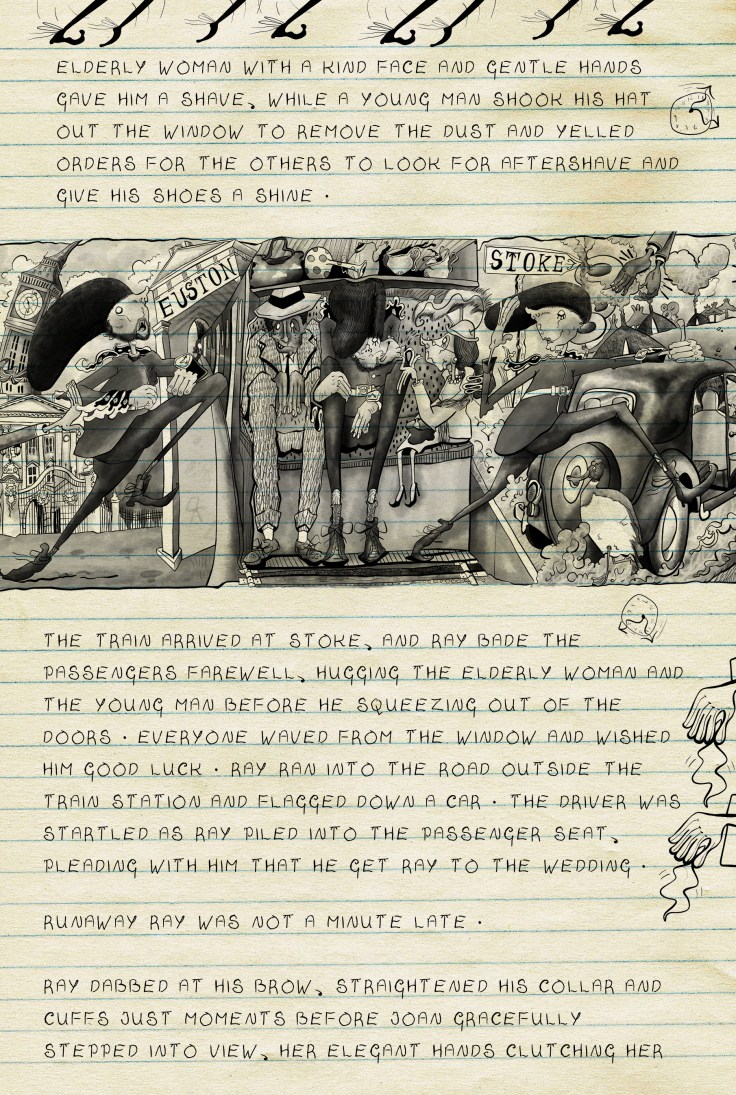 ELDERLY WOMAN WITH A KIND FACE AND GENTLE HANDS
GAVE HIM A SHAVE, WHILE A YOUNG MAN SHOOK HIS HAT
OUT THE WINDOW TO REMOVE THE DUST AND YELLED
ORDERS FOR THE OTHERS TO LOOK FOR AFTERSHAVE AND
GIVE HIS SHOES A SHINE .
EUSTON
STOKE
THE TRAIN ARRIVED AT STOKE, AND RAY BADE THE
PASSENGERS FAREWELL, HUGGING THE ELDERLY WOMAN AND
THE YOUNG MAN BEFORE HE SQUEEZING OUT OF THE
DOORS . EVERYONE WAVED FROM THE WINDOW AND WISHED
HIM GOOD LUCK . RAY RAN INTO THE ROAD OUTSIDE THE
TRAIN STATION AND FLAGGED DOWN A CAR . THE DRIVER WAS
STARTLED AS RAY PILED INTO THE PASSENGER SEAT,
PLEADING WITH HIM THAT HE GET RAY TO THE WEDDING .
RUNAWAY RAY WAS NOT A MINUTE LATE .
RAY DABBED AT HIS BROW, STRAIGHTENED HIS COLLAR AND
CUFFS JUST MOMENTS BEFORE JOAN GRACEFULLY
STEPPED INTO VIEW, HER ELEGANT HANDS CLUTCHING HER